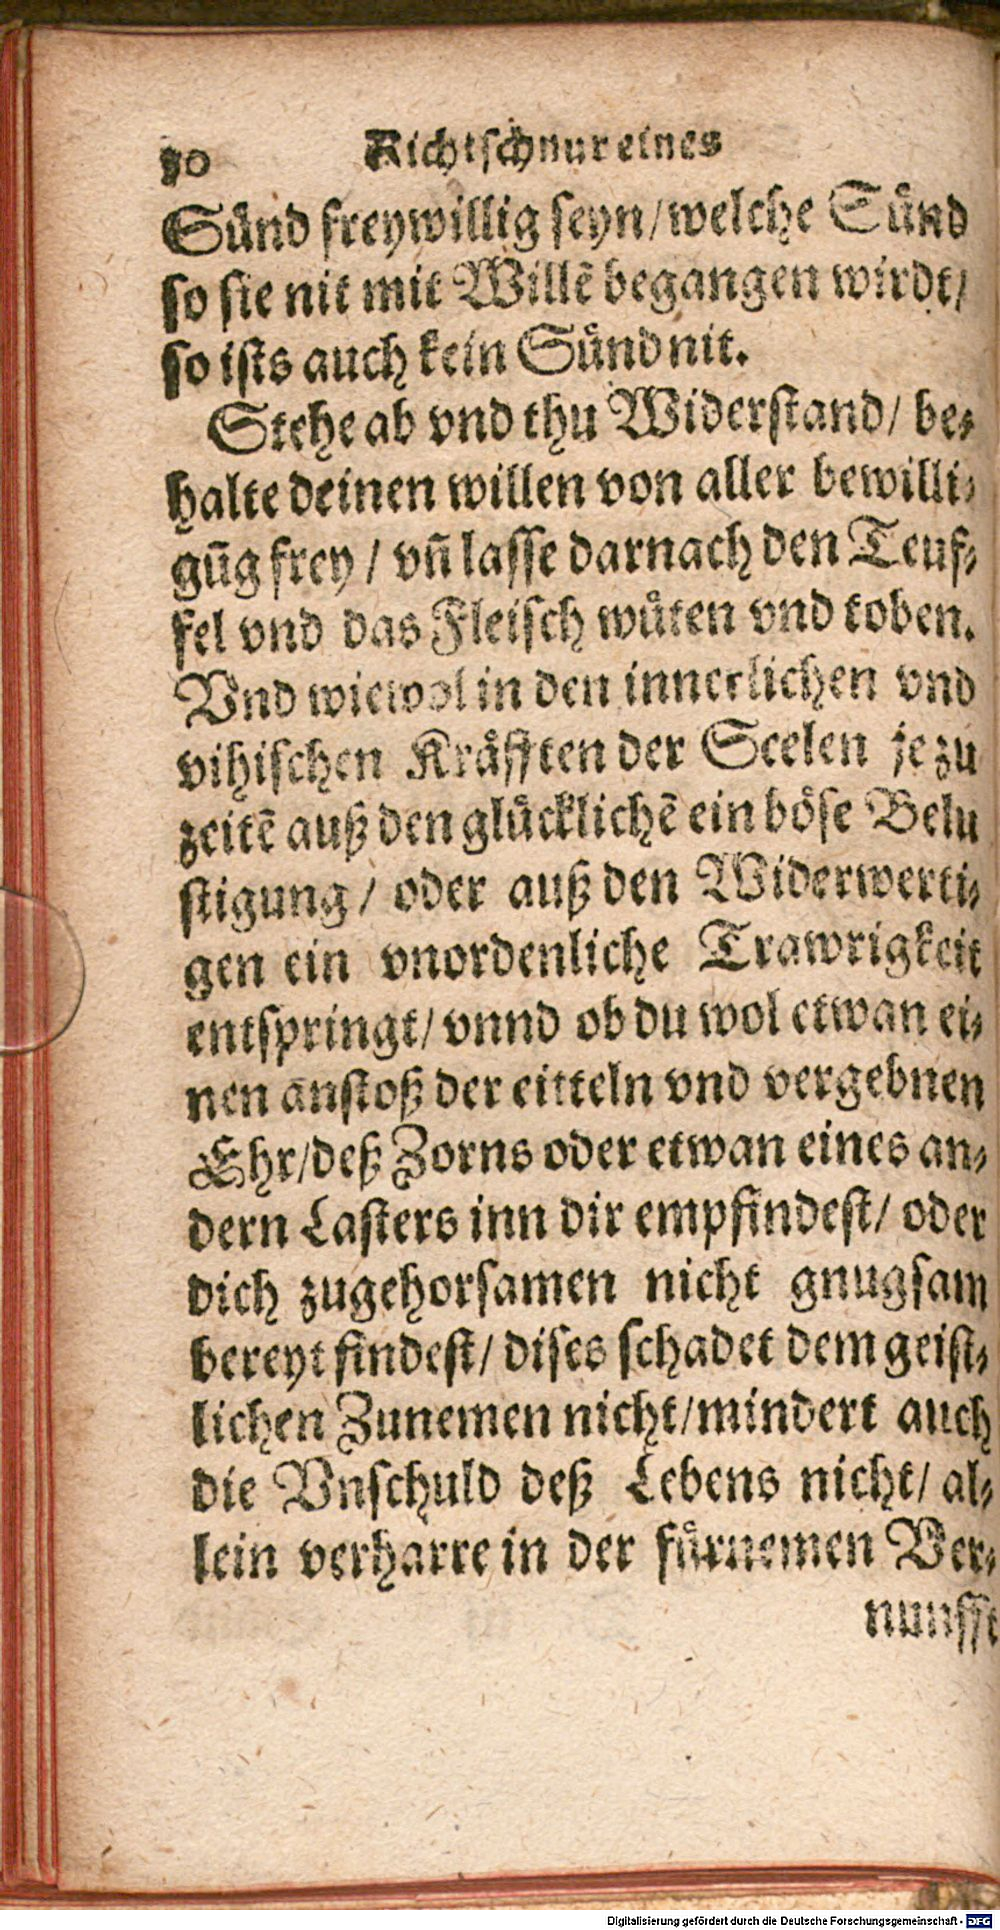 90 Richtschnur eines
Sünd freywillig seyn/welche Sünd
so sie nit mit Willē begangen wirdt/
so ists auch kein Sünd nit.
Stehe ab vnd thu Widerstand/ be-
halte deinen willen von aller bewilli-
gūg frey / vñ lasse darnach den Teuf-
fel vnd das Fleisch wüten vnd toben.
Vnd wiewol in den innerlichen vnd
vihischen Kräfften der Seelen je zu
zeitē auß den glücklichē ein böse Belu
stigung/ oder auß den Widerwerti-
gen ein vnordenliche Trawrigkeit
entspringt/ vnnd ob du wol etwan ei-
nen anstoß der eitteln vnd vergebnen
Ehr/deß Zorns oder etwan eines an-
dern Lasters inn dir empfindest/ oder
dich zugehorsamen nicht gnugsam
bereyt findest/ dises schadet dem geist-
lichen Zunemen nicht/mindert auch
die Vnschuld deß Lebens nicht/ al-
lein verharre in der fürnemen Ver-
nunfft
Digitalisierung gefördert durch die Deutsche Forschungsgemeinschaft - DFG